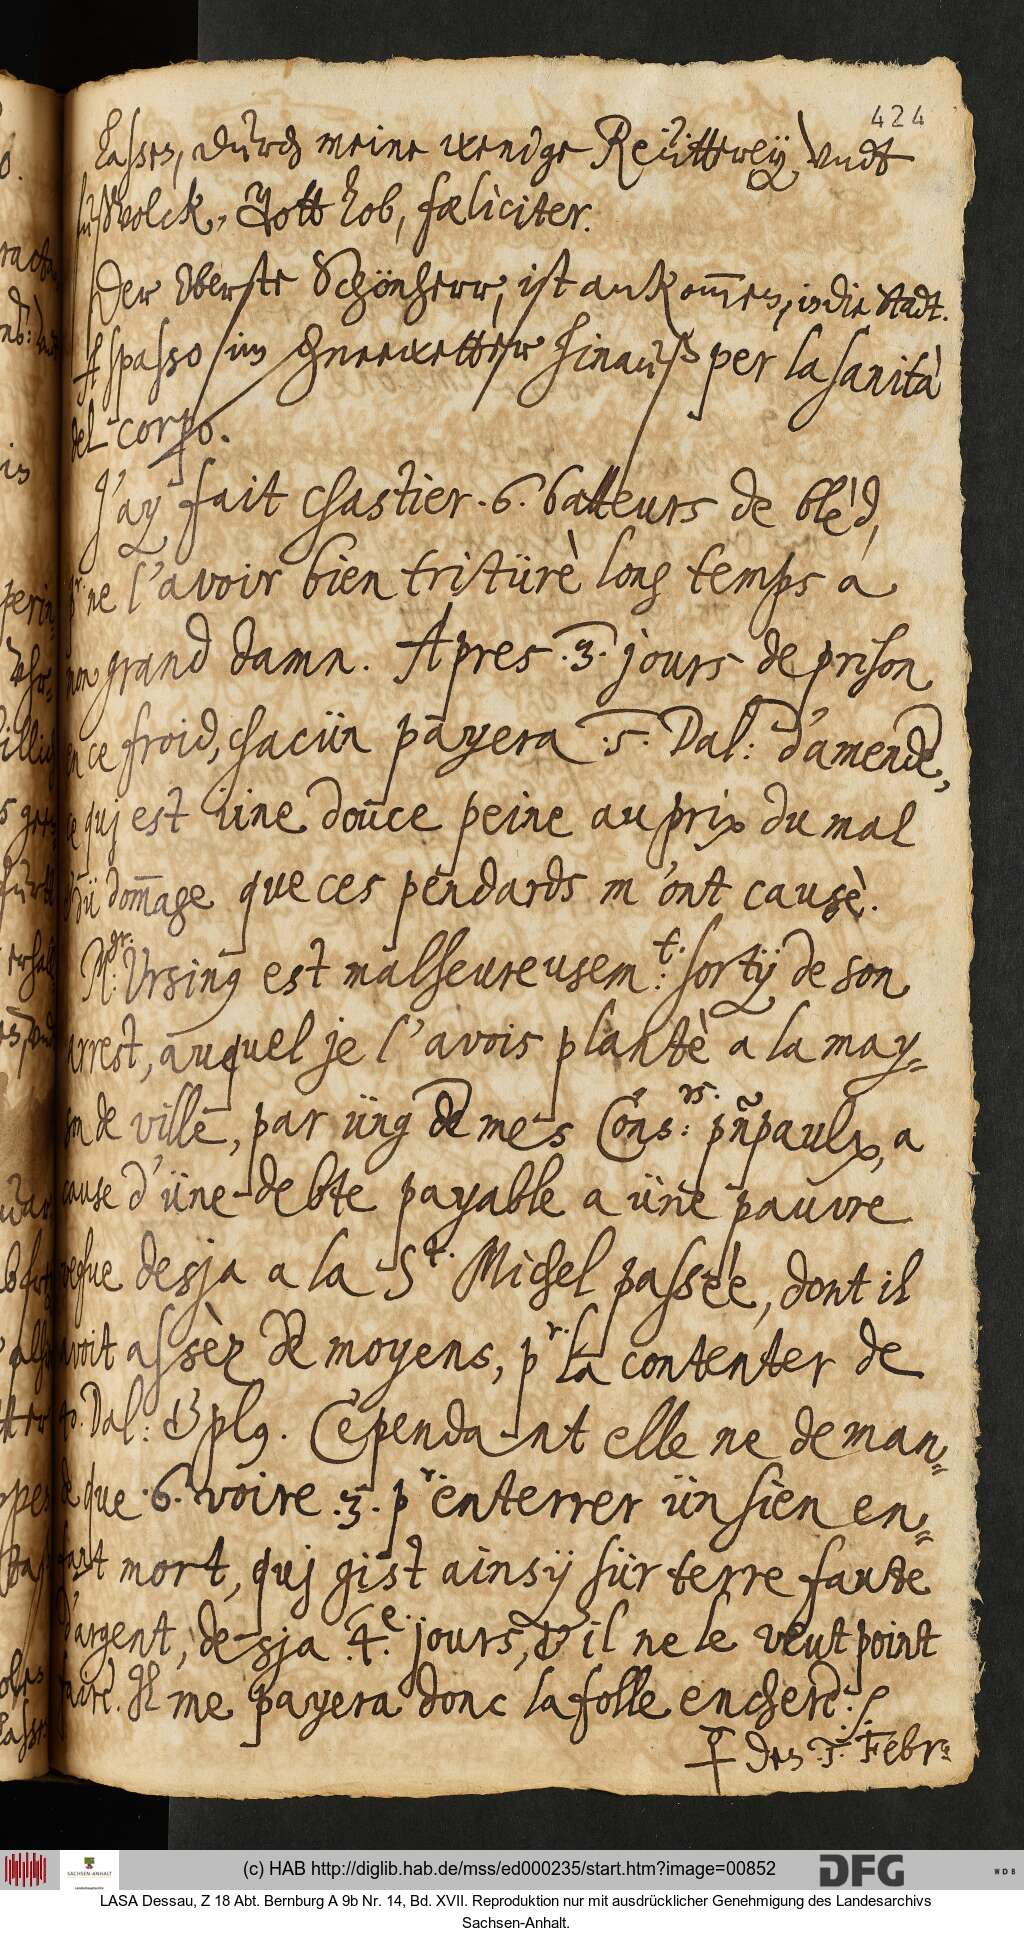 424
laßen, durch meine wenige Reütterey, vndt
fußvolck, Gott lob, fæliciter.
Der Oberste Schönherr, ist ankom̄en, in die Stadt.
A spasso im Schneewetter hinauß per la sanità
del corpo.
J'ay fait chastier .6. batteurs de blèd,
pr ne l'avoir bien tritürè long temps a
mon grand damn. Apres .3. jours de prison
en ce froid, chacün payera .5. Dal: d'amende,
ce quj est üne douce peine au prix du mal
& dü dom̄age que ces pendards m'ont causè.
Mr. Ursing est malheureusemt: sortÿ de son
arrest, auquel je l'avois plantè a la may-
son de ville, par üng de mes Cons:rs. pñpaulx, a
cause d'üne debte payable a üne pauvre
vefue desja a la St. Michel passèe, dont il
avoit assèz de moyens, pr. la contenter de
40. Dal: & plg. Cependant elle ne deman-
de que .6. voire .3. pr enterrer ün sien en-
fant mort, quj gist ainsÿ sür terre faute
d'argent, desja .4.e jours, & il ne le veut point
faire. Il me payera donc la folle encherè:
den .5. Febr:
(c) HAB http://diglib.hab.de/mss/ed000235/start.htm?image=00852
SACHSEN-ANHALT
DFG
WDB
LASA Dessau, Z 18 Abt. Bernburg A 9b Nr. 14, Bd. XVII. Reproduktion nur mit ausdrücklicher Genehmigung des Landesarchivs
Sachsen-Anhalt.